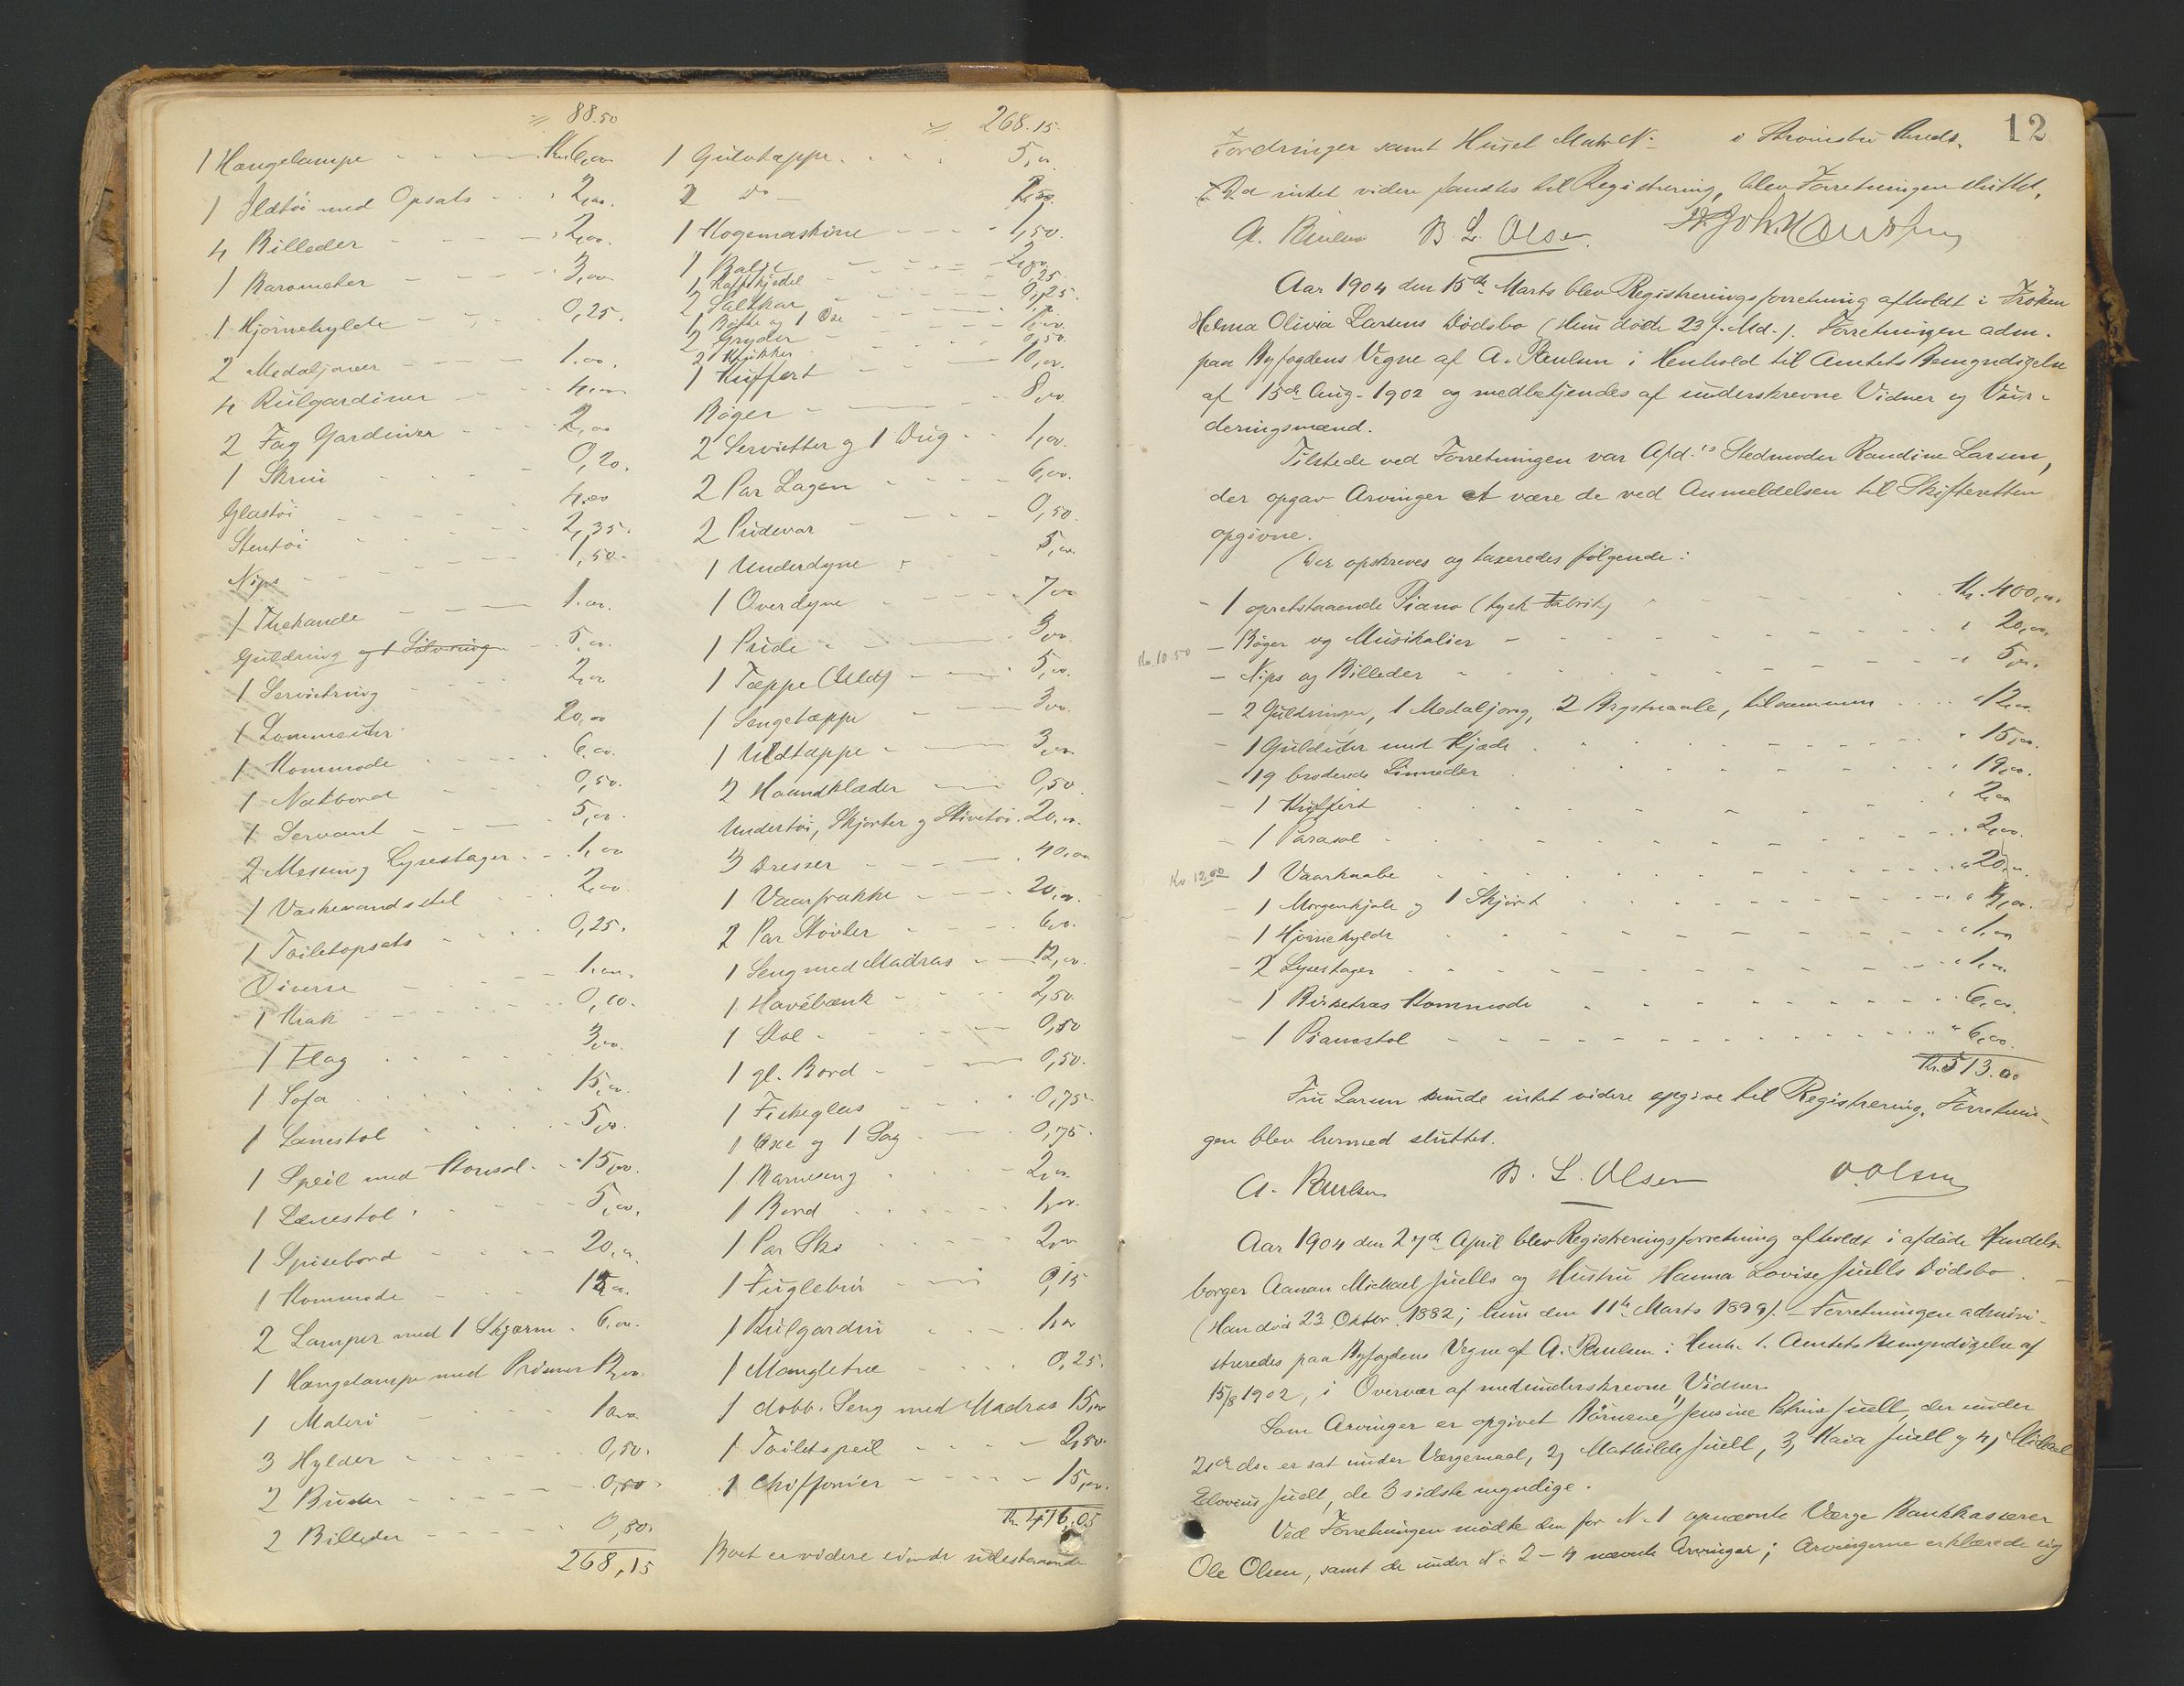 88.50
1 Hængelampe Kr. 6,00
1 Ildtøi med Opsats 2,00
4 Billeder 2,00
1 Barometer 3,00
1 Hjørnehylde 0,25
2 Medaljoner 1.00
4 Rulgardiner 4,00
2 Fag Gardiner 2,00
1 Skrin 0,20
Glastøi 4,00
Stentøi 2,35
Nips 1,50
1 Thekande 1.00
Guldring og 1 Sølvring 5,00
1 Servietring 2,00
1 Lommeuhr 20,00
1 Kommode 6,00
1 Natbord 0,50
1 Servant 5,00
2 Messing Lysestager 1,00
1 Vaskevandsstel 2,00
1 Toiletopsats 0,25
Diverse 1.00
1 Krak 0,10
1 Flag 3,00
1 Sofa 15,00
1 Lænestol 5,00
1 Speil med Konsol 15,00
1 Lænestol 5,00
1 Spisebord 20,00
1 Kommode
2 Lamper med 1 Skjærm 6,00
1 Hængelampe med Prismer
1 Maleri
3 Hylder 0,50
2 Buster 0,50
2 Billeder 0,80
268,15
268.15
1 Gulvtæppe 5,00
2 do
1 Kogemaskine 1,50
1 Balje 2,00
1 Kaffekjedel 0,25
2 Saltkar 0,25
1 Bøtte og 1 Øse
2 Gryder
2 Krukker 0,50
1 Kuffert 10,00
Bøger 8,00
2 Servietter og 1 Dug 1,00
2 Par Lagen 6,00
2 Pudevar 0,50
1 Underdyne 5,00
1 Overdyne 7,00
1 Pude 3,00
1 Tæppe (Uld) 5,00
1 Sengetæppe 3,00
1 Uldtæppe 3,00
2 Haandklæder 0,50
Undertøi, Skjorter og Stivetøi 20,00
3 Dresser 40,00
1 Vaarfrakke 20,00
2 Par Støvler 6,00
1 Seng med Madras 12,00
1 Havebænk 2,50
1 Stol 0,50
1 gl. Bord 0,50
1 Fiskeglas 0,75
1 Øxe og 1 Sag 0,75
1 Barneseng 2,00
1 Bord 1,00
1 Par Ski 2,00
1 Fuglebur 0,15
1 Rulgardin 1,00
1 Mangletræ 0,25
1 dobb. Seng med Madras 15,00
1 Toiletspeil 2,50
1 Chiffonier 15,00
Kr. 416,05
Boet er videre eiende udestaaende
12
Fordringer samt Huset Matr No i Strømsbu Kreds.
Da intet videre fandtes til Registrering, blev Forretningen sluttet.
A. Paulsen B. L. Olsen.
Aar 1904 den 15de Marts blev Registreringsforretning afholdt i Frøken
Helma Olivia Larsens Dødsbo (Hun døde 23 f. Md.). Forretningen adm.
paa Byfogdens Vegne af A. Paulsen i Henhold til Amtets Bemyndigelse
af 15de Aug. 1902 og medbetjendes af underskrevne Vidner og Vur-
deringsmænd.
Tilstede ved Forretningen var Afd.'s Stedmoder Randine Larsen,
der opgav Arvinger at være de ved Anmeldelsen til Skifteretten
opgivne.
Der opskreves og taxeredes følgende:
1 opretstaaende Piano (tysk Fabrik) Kr. 400,00
Kr. 10.50 Bøger og Musikalier 20,00
Nips og Billeder 5,00
2 Guldringer, 1 Medaljong, 2 Brystnaale, tilsammen 12,00
1 Guldur med Kjæde 15,00
19 broderede Linneder 19,00
1 Kuffert 2,00
1 Parasol 2,00
Kr. 12.00 1 Vaarkaabe 20,00
1 Morgenkjole og 1 Skjørt 4,00
1 Hjørnehylde 1,00
2 Lysestager 1,00
1 Birketræs Kommode 6,00
1 Pianostol 6,00
Kr. 513.00
Fru Larsen kunde intet videre opgive til Registrering. Forretnin-
gen blev hermed sluttet.
A. Paulsen B. L. Olsen O. Olsen
Aar 1904 den 27de April blev Registreringsforretning afholdt i afdøde Handels-
borger Aanon Michael Juells og Hustru Hanna Lovise Juells Dødsbo.
(Han død 23 Oktbr. 1882; hun den 11te Marts 1899). Forretningen admini-
streredes paa Byfogdens Vegne af A. Paulsen i Henh. t. Amtets Bemyndigelse af
15/8 1902, i Overvær af medunderskrevne Vidner.
Som Arvinger er opgivet Børnene 1, Jensine Petrine Juell, der under
21de ds. er sat under Værgemaal, 2, Mathilde Juell, 3, Maia Juell og 4, Michael
Edovius Juell, de 3 sidste myndige.
Ved Forretningen mødte den for No 1 opnævnte Værge Bankkasserer
Ole Olsen, samt de under No 2 - 4 nævnte Arvinger; Arvingerne erklærede sig